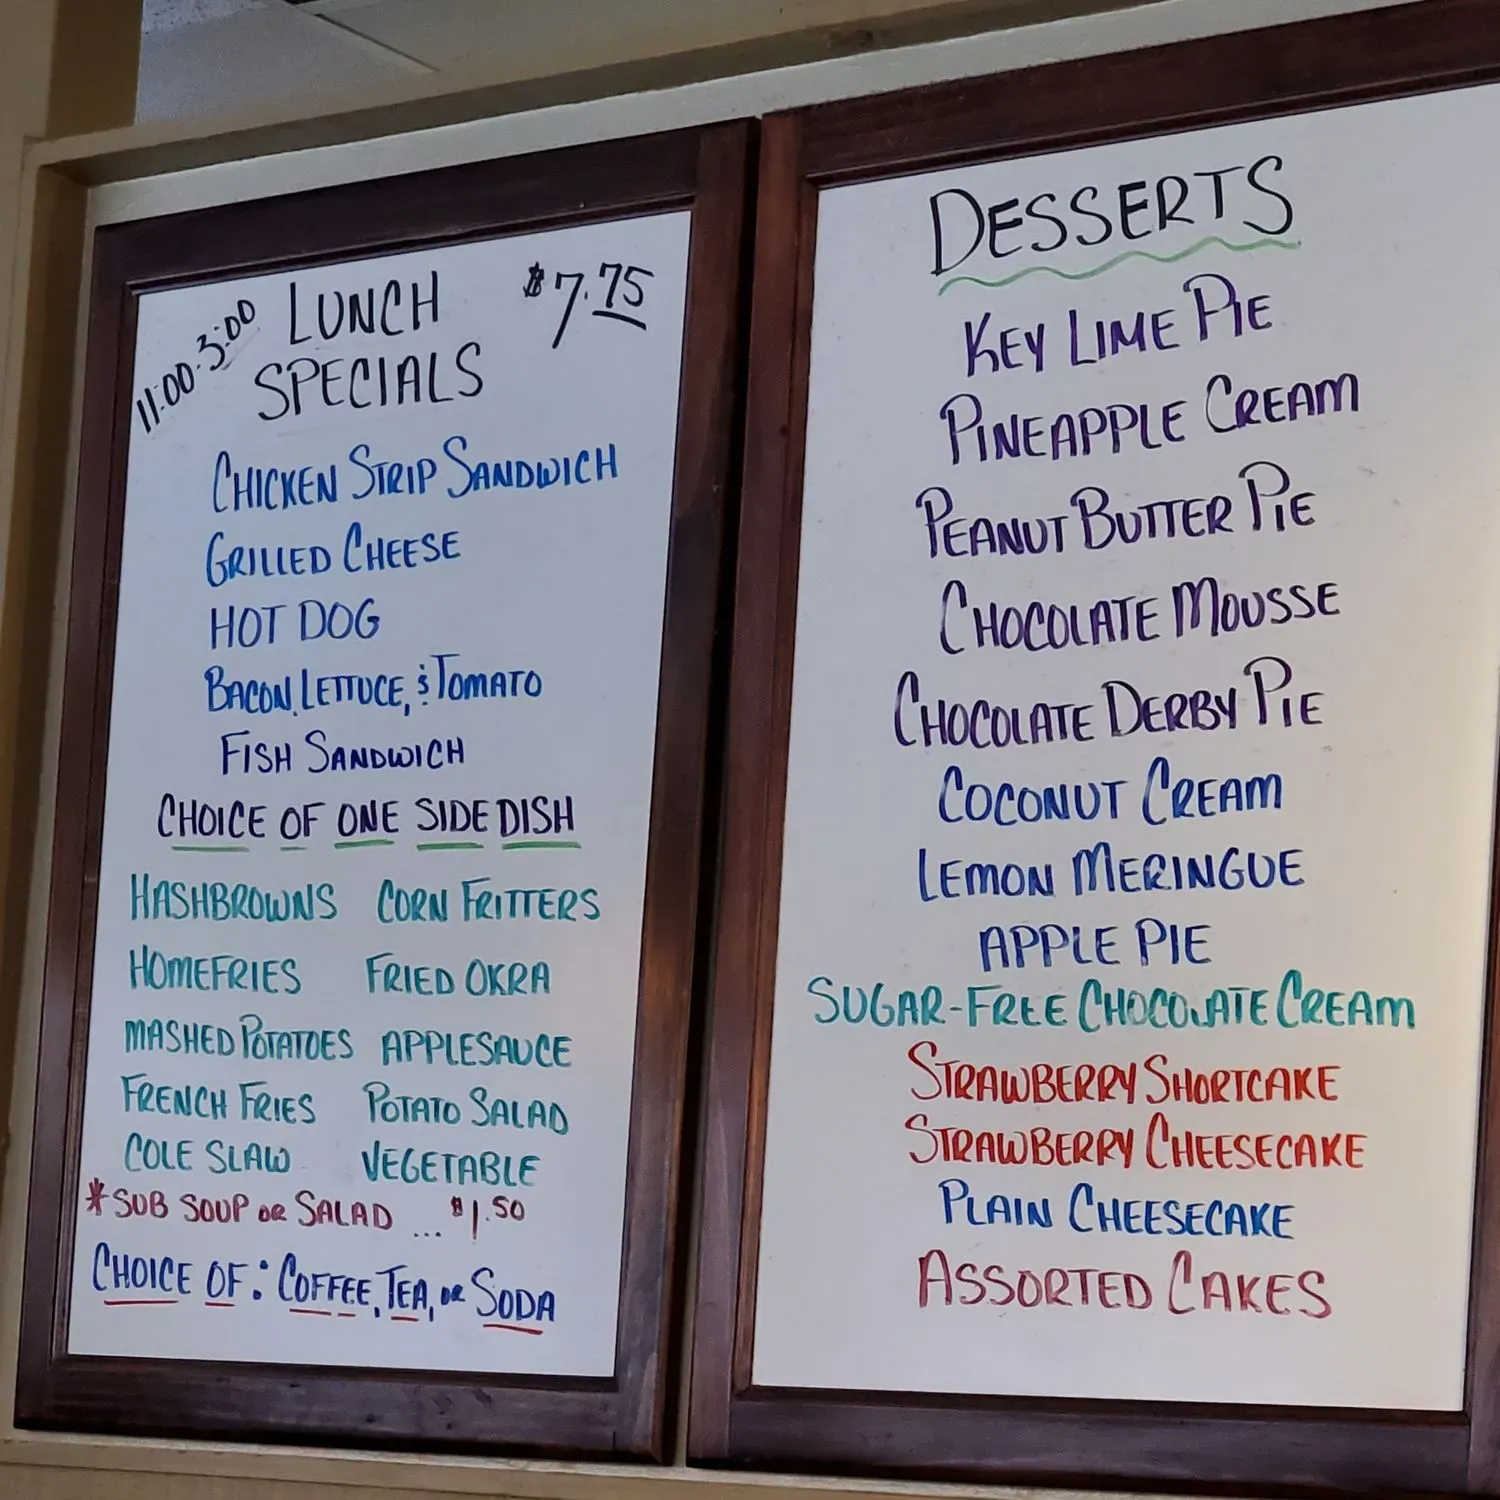 11:00-3:00 LUNCH $7.75
SPECIALS
CHICKEN STRIP SANDWICH
GRILLED CHEESE
HOT DOG
BACON, LETTUCE, & TOMATO
FISH SANDWICH
CHOICE OF ONE SIDE DISH
HASHBROWNS CORN FRITTERS
HOMEFRIES FRIED OKRA
MASHED POTATOES APPLESAUCE
FRENCH FRIES POTATO SALAD
COLE SLAW VEGETABLE
*SUB SOUP OR SALAD ... $1.50
CHOICE OF: COFFEE, TEA, OR SODA
DESSERTS
KEY LIME PIE
PINEAPPLE CREAM
PEANUT BUTTER PIE
CHOCOLATE MOUSSE
CHOCOLATE DERBY PIE
COCONUT CREAM
LEMON MERINGUE
APPLE PIE
SUGAR-FREE CHOCOLATE CREAM
STRAWBERRY SHORTCAKE
STRAWBERRY CHEESECAKE
PLAIN CHEESECAKE
ASSORTED CAKES